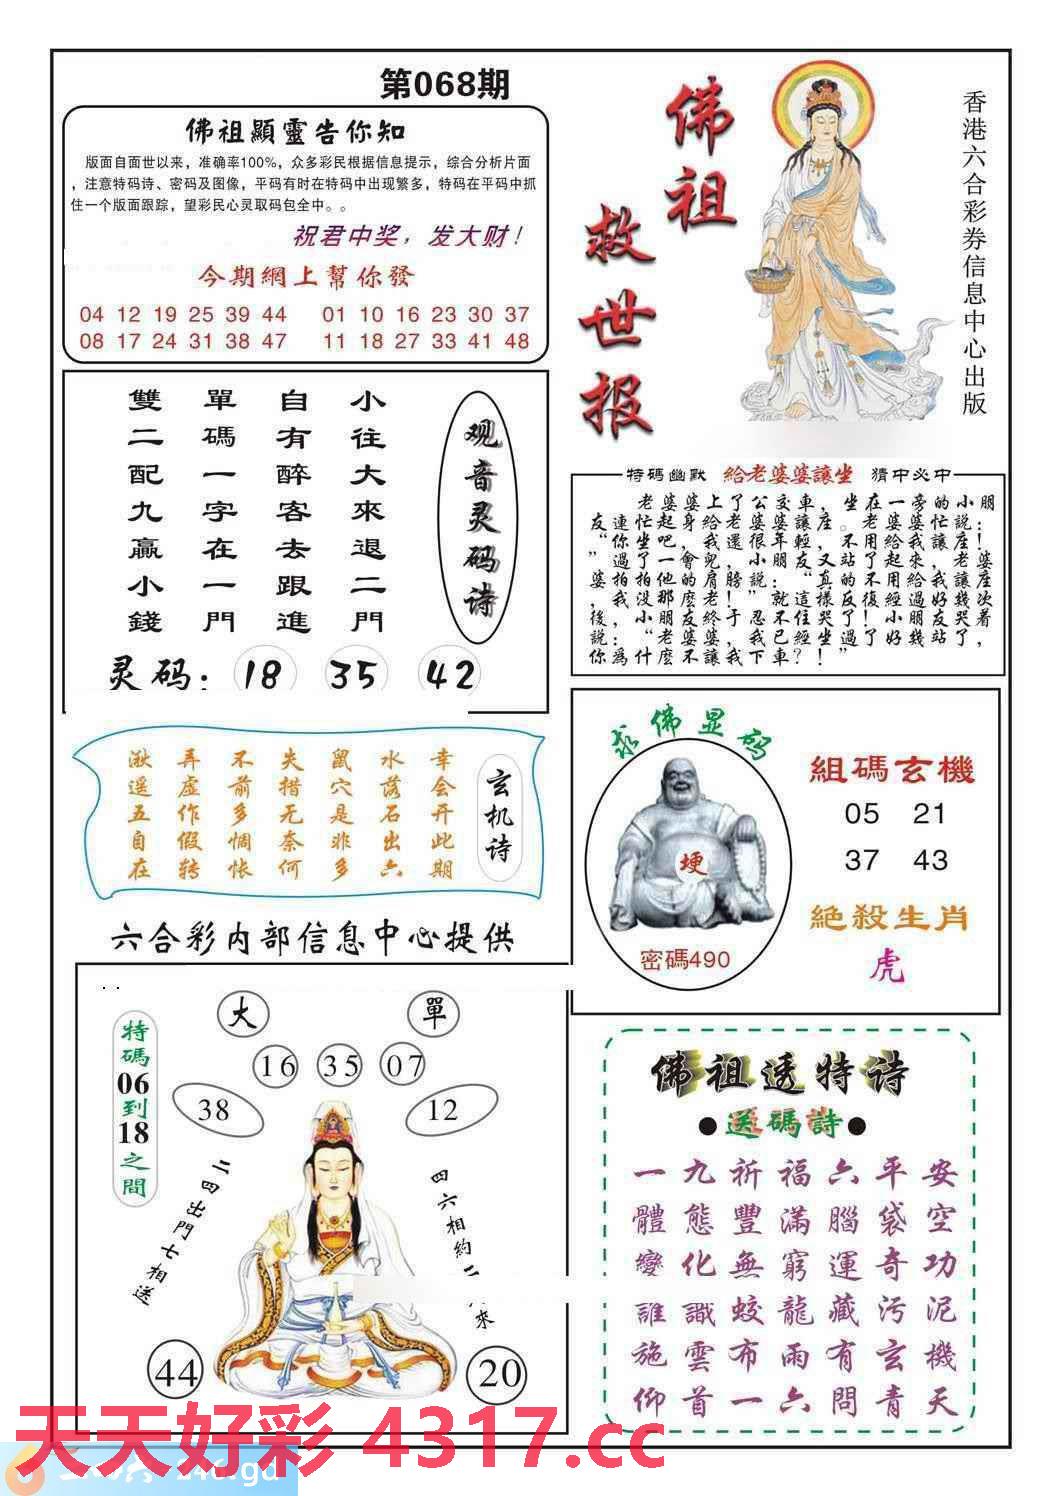 第068期
佛祖顯靈告你知
版面自面世以来，准确率100%，众多彩民根据信息提示，综合分析片面
，注意特码诗、密码及图像，平码有时在特码中出现繁多，特码在平码中抓
住一个版面跟踪，望彩民心灵取码包全中。。
祝君中奖，发大财！
今期網上幫你發
04 12 19 25 39 44 01 10 16 23 30 37
08 17 24 31 38 47 11 18 27 33 41 48
佛祖
救世报
香港六合彩券信息中心出版
观音灵码诗
小往大來退二門
自有醉客去跟進
單碼一字在一門
雙二配九贏小錢
灵码：18 35 42
特码幽默 給老婆婆讓坐 猜中必中
老婆婆上了公交車，坐在一旁的小朋
友連忙起身給老婆婆讓座。老婆婆忙説：
“你坐吧，我還很年輕，不用給我讓座！
”過了一會兒，小朋友又站了起來，老婆
婆拍拍他的肩膀説：“真的不用給我讓座
，我没那麽老！”就這樣反復經過好幾次
後，小朋友終于忍不住哭了！小朋友哭着
説：“老婆婆，我已經坐過了好幾站了，
你爲什麽不讓我下車？！”
玄机诗
幸会开此期
水落石出六
鼠穴是非多
失措无奈何
不前多惆怅
弄虚作假转
湫遥五自在
求佛显码
埂
密碼490
組碼玄機
05 21
37 43
絶殺生肖
虎
六合彩内部信息中心提供
特碼06到18之間
大
單
16 35 07
38
12
二四出門七相送
四六相約二
來
44
20
佛祖透特诗
●送碼詩●
安空功泥機天
平袋奇污玄青
六腦運藏有問
福滿窮龍雨六
祈豐無蛟布一
九態化識雲首
一體變誰施仰
天天好彩 4317.cc
246.gd